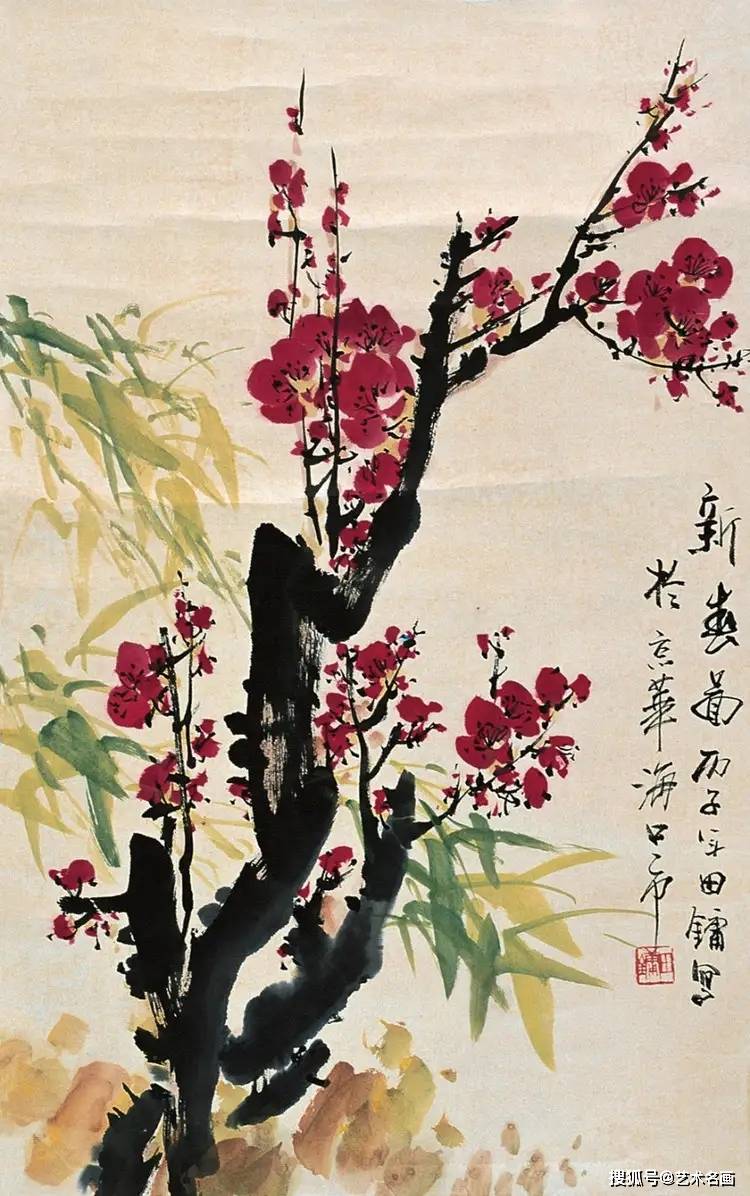 新春圖丙子年田鏞寫
於京華海口市
田鏞
搜狐号@艺术名画